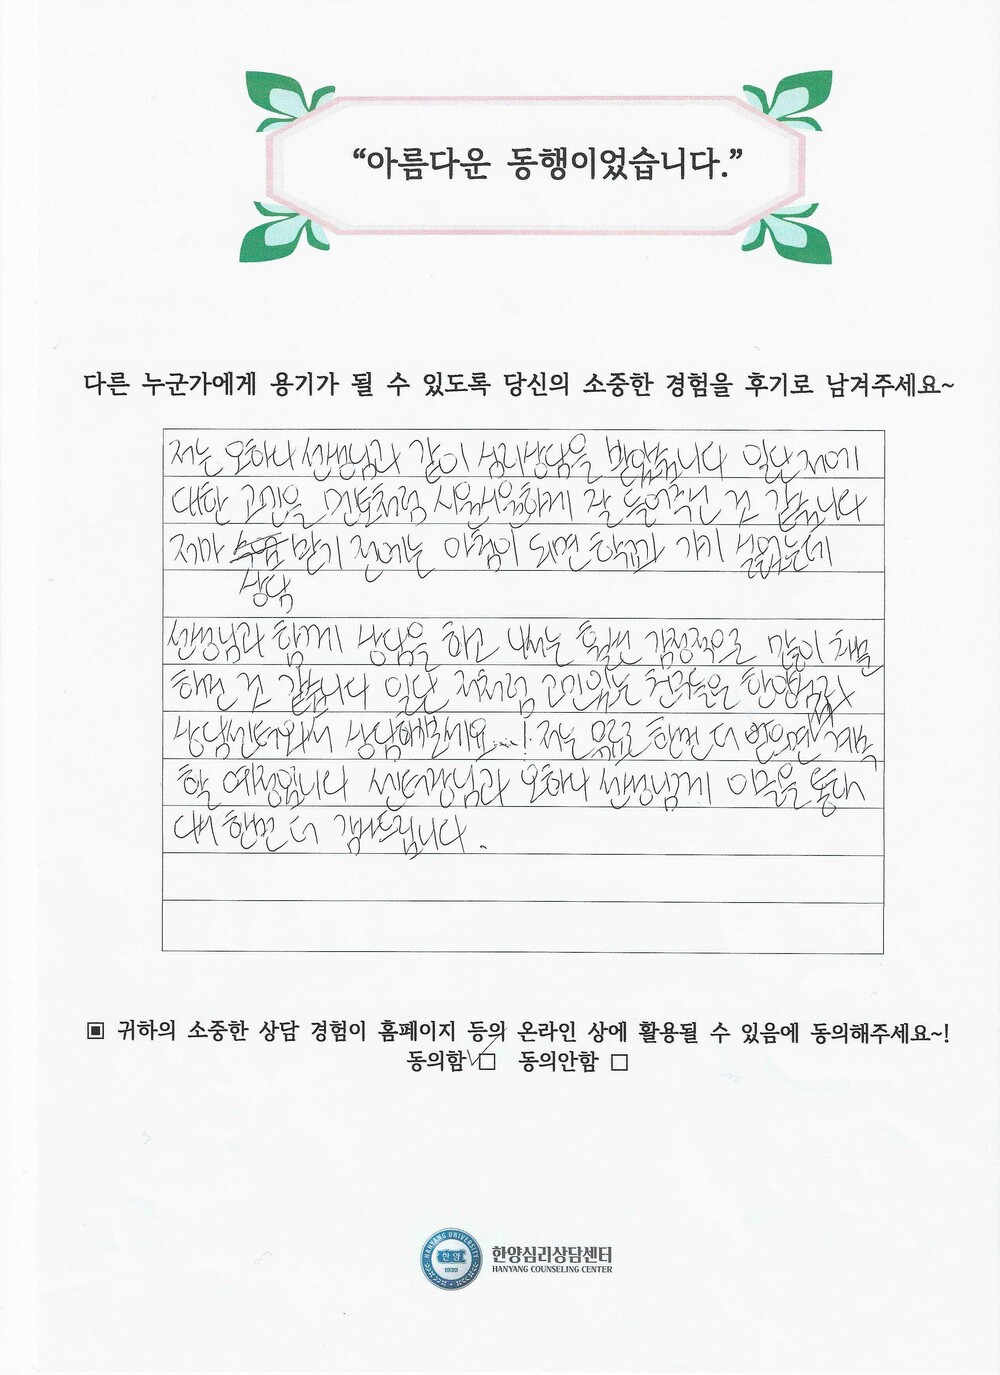 “아름다운 동행이었습니다.”
다른 누군가에게 용기가 될 수 있도록 당신의 소중한 경험을 후기로 남겨주세요~
저는 오하나 선생님과 같이 심리상담을 받았습니다 일단 저에
대한 고민을 멘토처럼 시원시원하게 잘 들어주신 것 같습니다
제가 받기 전에는 아침이 되면 학교과 가기 싫었는데
상담
선생님과 함께 상담을 하고 나서는 훨씬 감정적으로 많이
해진 것 같습니다 일단 저처럼 고민있는 친구들은 한양심리
상담센터와서 상담해보세요....! 저는 유료로 한번 더 받으면서 계속
할 예정입니다 센터장님과 오하나 선생님께 이 글을 통해
다시 한번 더 감사드립니다.
▣ 귀하의 소중한 상담 경험이 홈페이지 등의 온라인 상에 활용될 수 있음에 동의해주세요~!
동의함 □ 동의안함 □
HANYANG UNIVERSITY
한양
1939
한양심리상담센터
HANYANG COUNSELING CENTER